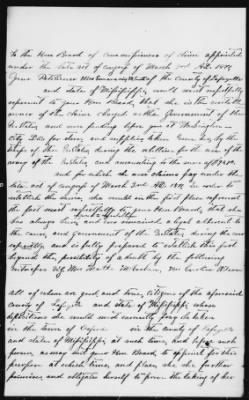 To the Hon Board of commissioners of claims appointed
under the late act of congress of March 3rd A.D. 1871
Your Petitioner of the county of Lafayette
and state of Mississippi would most respectfully
represent to your Hon Board, that she is the
owner of the claim charged the Government of the
U States, and now pending upon you at Washington
city D.C. for stores and supplies taken from her by the
troops of the U States, during the rebellion for the use of the
army of the U States, and amounting to the sum of
and for which she now claims pay under the
late act of congress of March 3rd A.D. 1871 in order to
establish the above, she would in the first place represent
that she
has always been, and now considered loyal adherent to
the cause, and government of the U States, during the war
and is fully prepared to establish this fact
beyond the possibility of a doubt by the following
witnesses
all of whom are good, and true, citizens of the aforesaid
county of Lafayette and State of Mississippi, whose
depositions she would most earnestly pray be taken
in the town of Oxford in the county of Lafayette
and state of Mississippi, at such time, and before such
person, as may suit your Hon Board, to appoint for this
purpose at which time, and place, she further
promises, and obligates herself to prove the taking of her